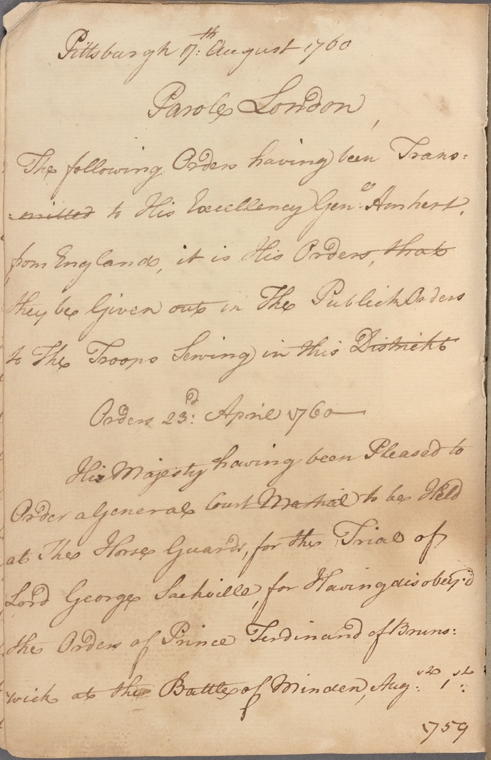 Pittsburgh 17:th August 1760
Parole London
The following Orders having been Trans:
:mitted to His Excellency Gen.l Amherst,
from England, it is His Orders, that
they be Given out in The Publick Orders
to The Troops Serving in this District
Orders 23:d April 1760
His Majesty having been Pleased to
Order a General Court Martial to be Held
at The Horse Guards, for the Trial of
Lord George Sackville, for Having disobey'd
the Orders of Prince Ferdinand of Bruns:
wick at the Battle of Minden, Aug:st 1st:
1759